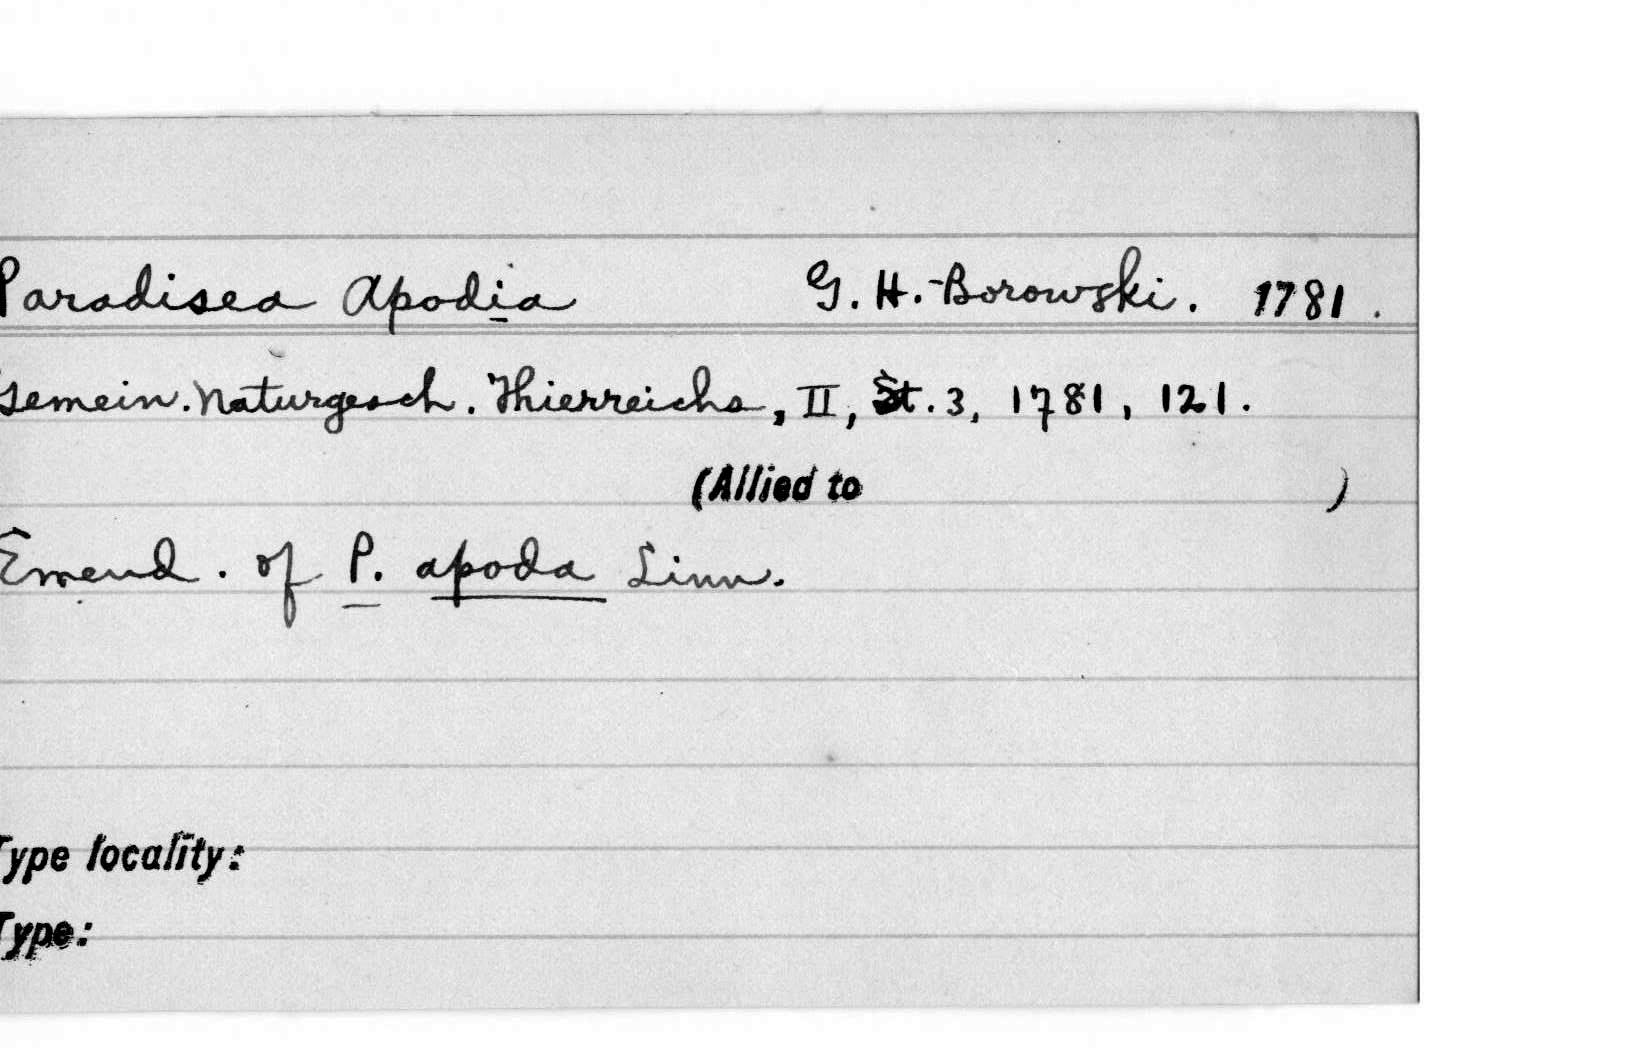 Paradisea Apodia G. H. Borowski. 1781.
Gemein. Naturgesch. Thierreichs, II, St. 3, 1781, 121.
(Allied to )
Emend. of P. apoda Linn.
Type locality:
Type: